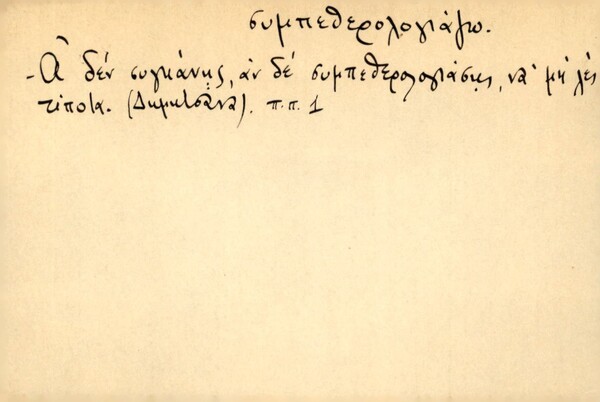 συμπεθερολογιάζω.
-Ἂ δέν συγκάνῃς, ἀν δέ συμπεθερολογιάσῃς, νά μή λές
τίποτα. (Δημητσάνα). π.π. 1